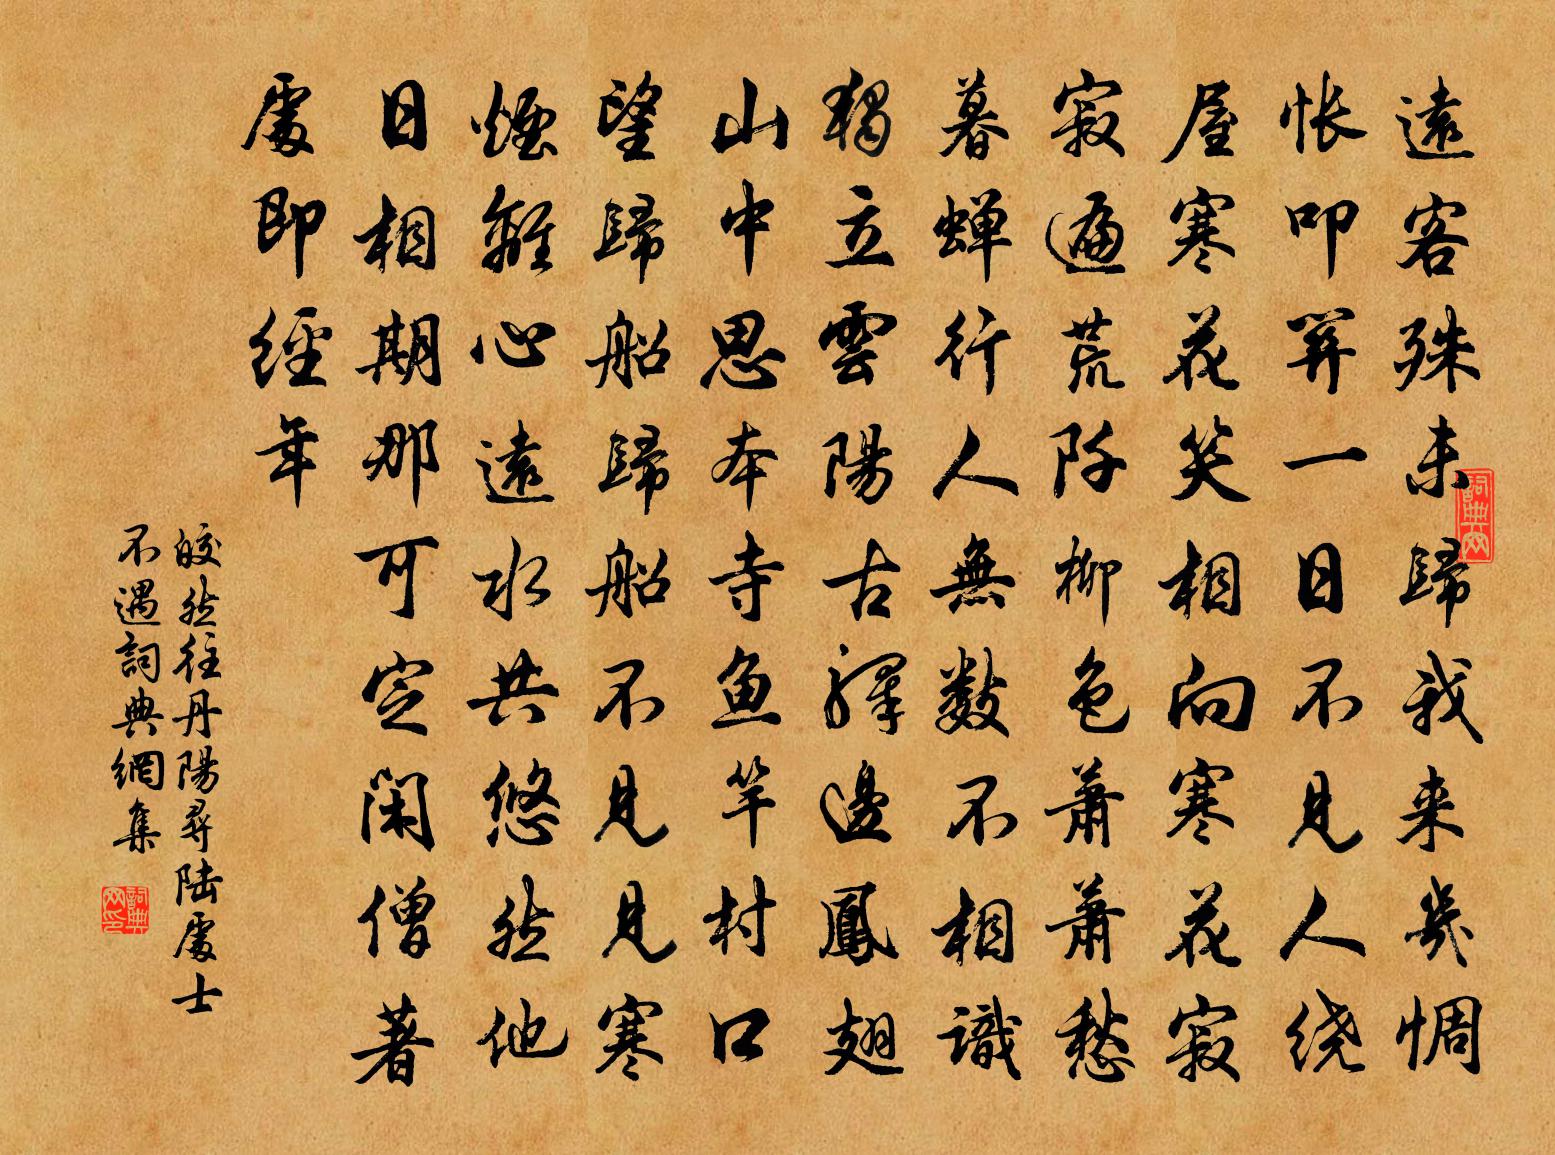 遠客殊未歸我来幾惆
怅叩关一日不見人绕
屋寒花笑相向寒花寂
寂遍荒阡柳色蕭蕭愁
暮蝉行人無數不相識
獨立雲陽古驛邊鳳翅
山中思本寺鱼竿村口
望歸船歸船不見見寒
煙離心遠水共悠然他
日相期那可定閑僧著
處即經年
皎然往丹陽尋陸處士
不遇詞典網集
詞典网
詞典网印